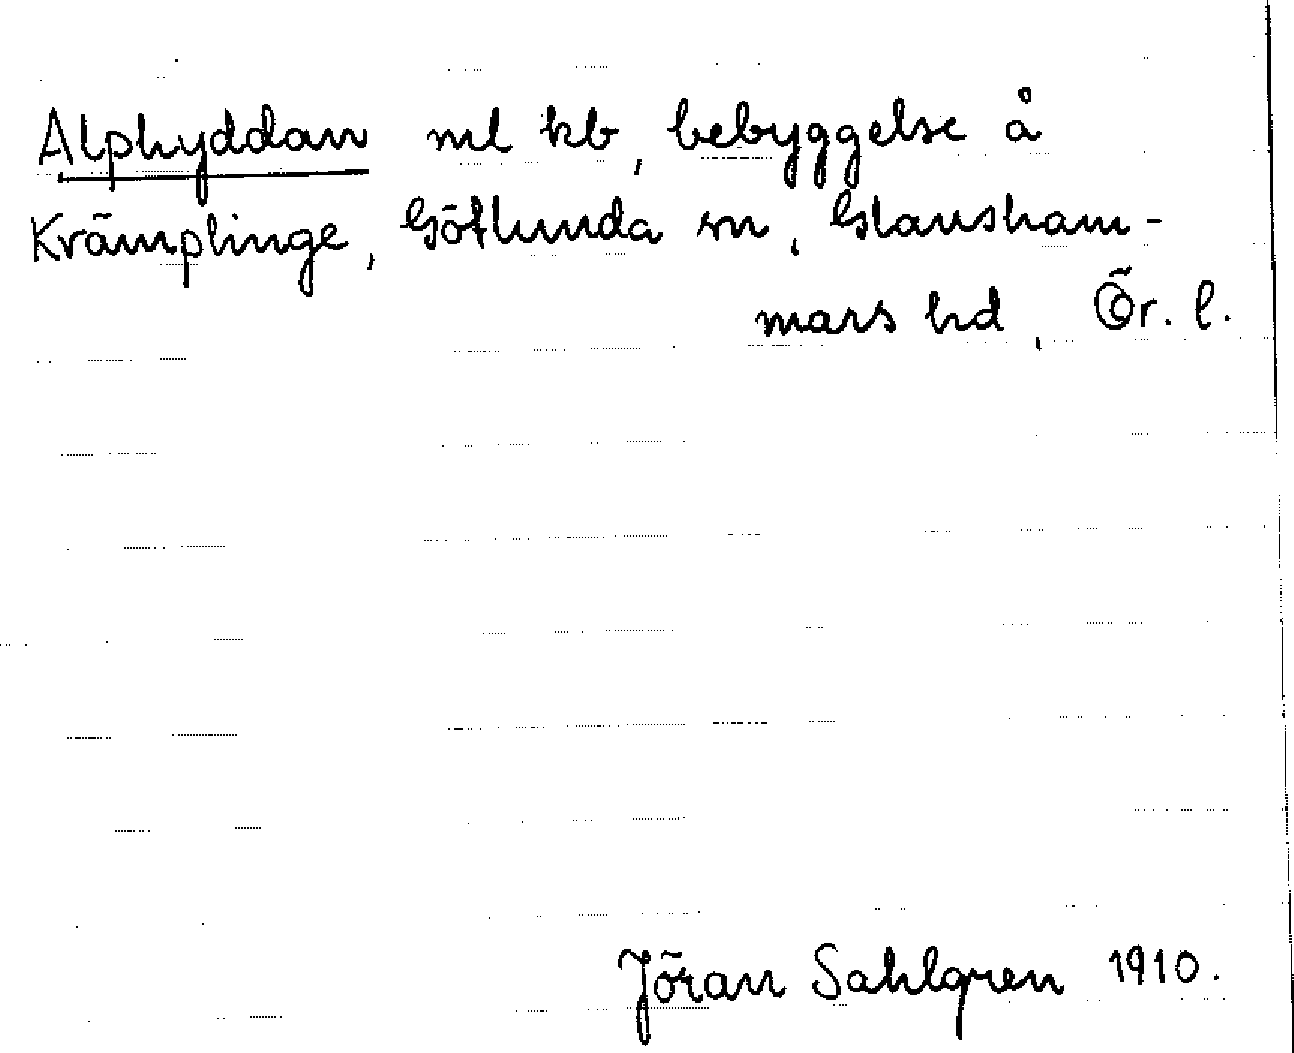 Alphyddan ml kb, bebyggelse å
Krämplinge, Götlunda sn, Glansham-
mars hd, Ör. l.
Jöran Sahlgren 1910.